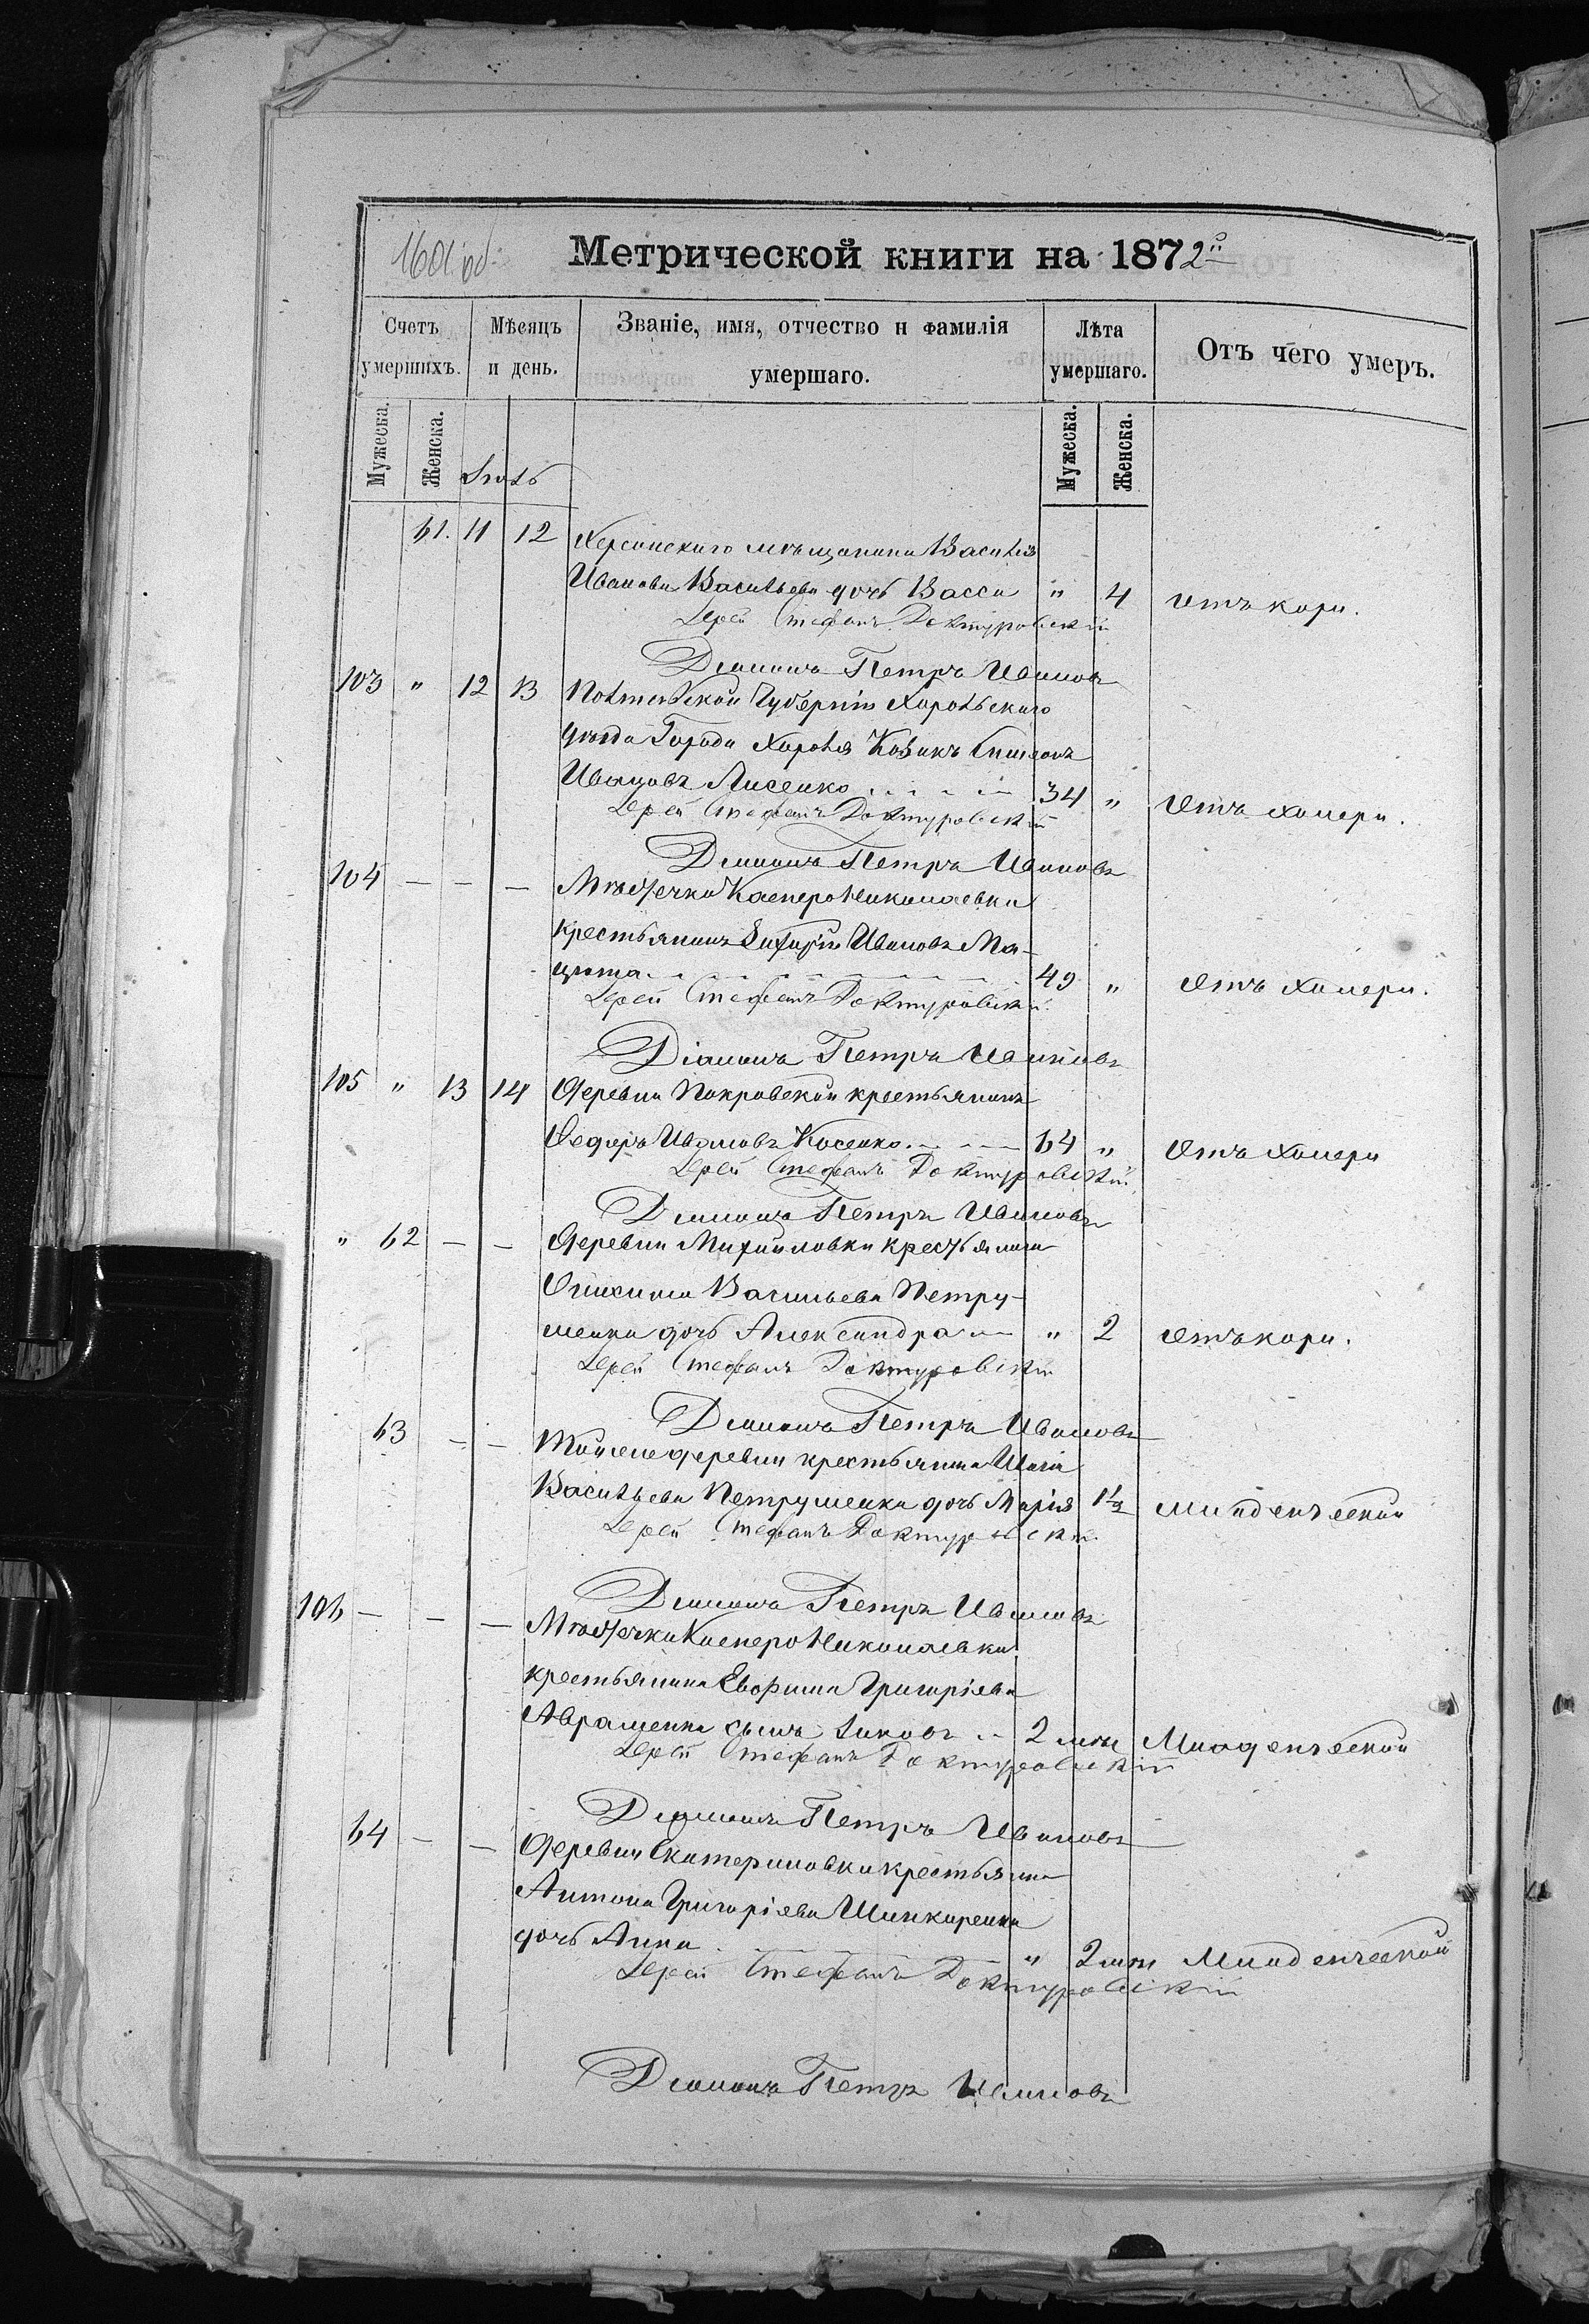 1601 об.
Метрической книги на 1872й
Счетъ умершихъ.
Мѣсяцъ и день.
Званіе, имя, отчество и фамилія умершаго.
Лѣта умершаго.
Отъ чего умеръ.
Мужеска. Женска.
Мужеска. Женска.
Іюль
61. 11 12 Херсонскаго мѣщанина Василія
Иванова Васильева дочь Васса " 4 отъ кори.
Іерей Стефанъ Доктуровскій
Діаконъ Петръ Ивановъ
103 " 12 13 Полтавской Губерніи Хорольскаго
уѣзда Города Хорола Козакъ Симеонъ
Ивановъ Лисенко 34 " Отъ холеры.
Іерей Стефанъ Доктуровскій
Діаконъ Петръ Ивановъ
104 — — — Мѣстечка Касперо Николаевки
крестьянинъ Захарій Ивановъ Ма-
цюта 49 " Отъ холеры.
Іерей Стефанъ Доктуровскій
Діаконъ Петръ Ивановъ
105 " 13 14 Деревни Покровской крестьянинъ
Ѳедоръ Ивановъ Косенко 64 " Отъ холеры
Іерей Стефанъ Доктуровскій
Діаконъ Петръ Ивановъ
" 62 — — Деревни Михайловки крестьянина
Васильева Петру-
шенка дочь Александра " 2 отъ кори.
Іерей Стефанъ Доктуровскій
Діаконъ Петръ Ивановъ
63 — — Той же деревни крестьянина
Васильева Петрушенка дочь Марія 1½ младенческой
Іерей Стефанъ Доктуровскій
Діаконъ Петръ Ивановъ
106 — — — Мѣстечка Касперо Николаевки
крестьянина Евфима Григоріева
Аврашенка сынъ Іаковъ 2 мѣс Младенческой
Іерей Стефанъ Доктуровскій
Діаконъ Петръ Ивановъ
64 — — Деревни Екатериновки крестьянина
Антона Григоріева Шинкаренка
дочь Анна " 2 мѣс Младенческой
Іерей Стефанъ Доктуровскій
Діаконъ Петръ Ивановъ